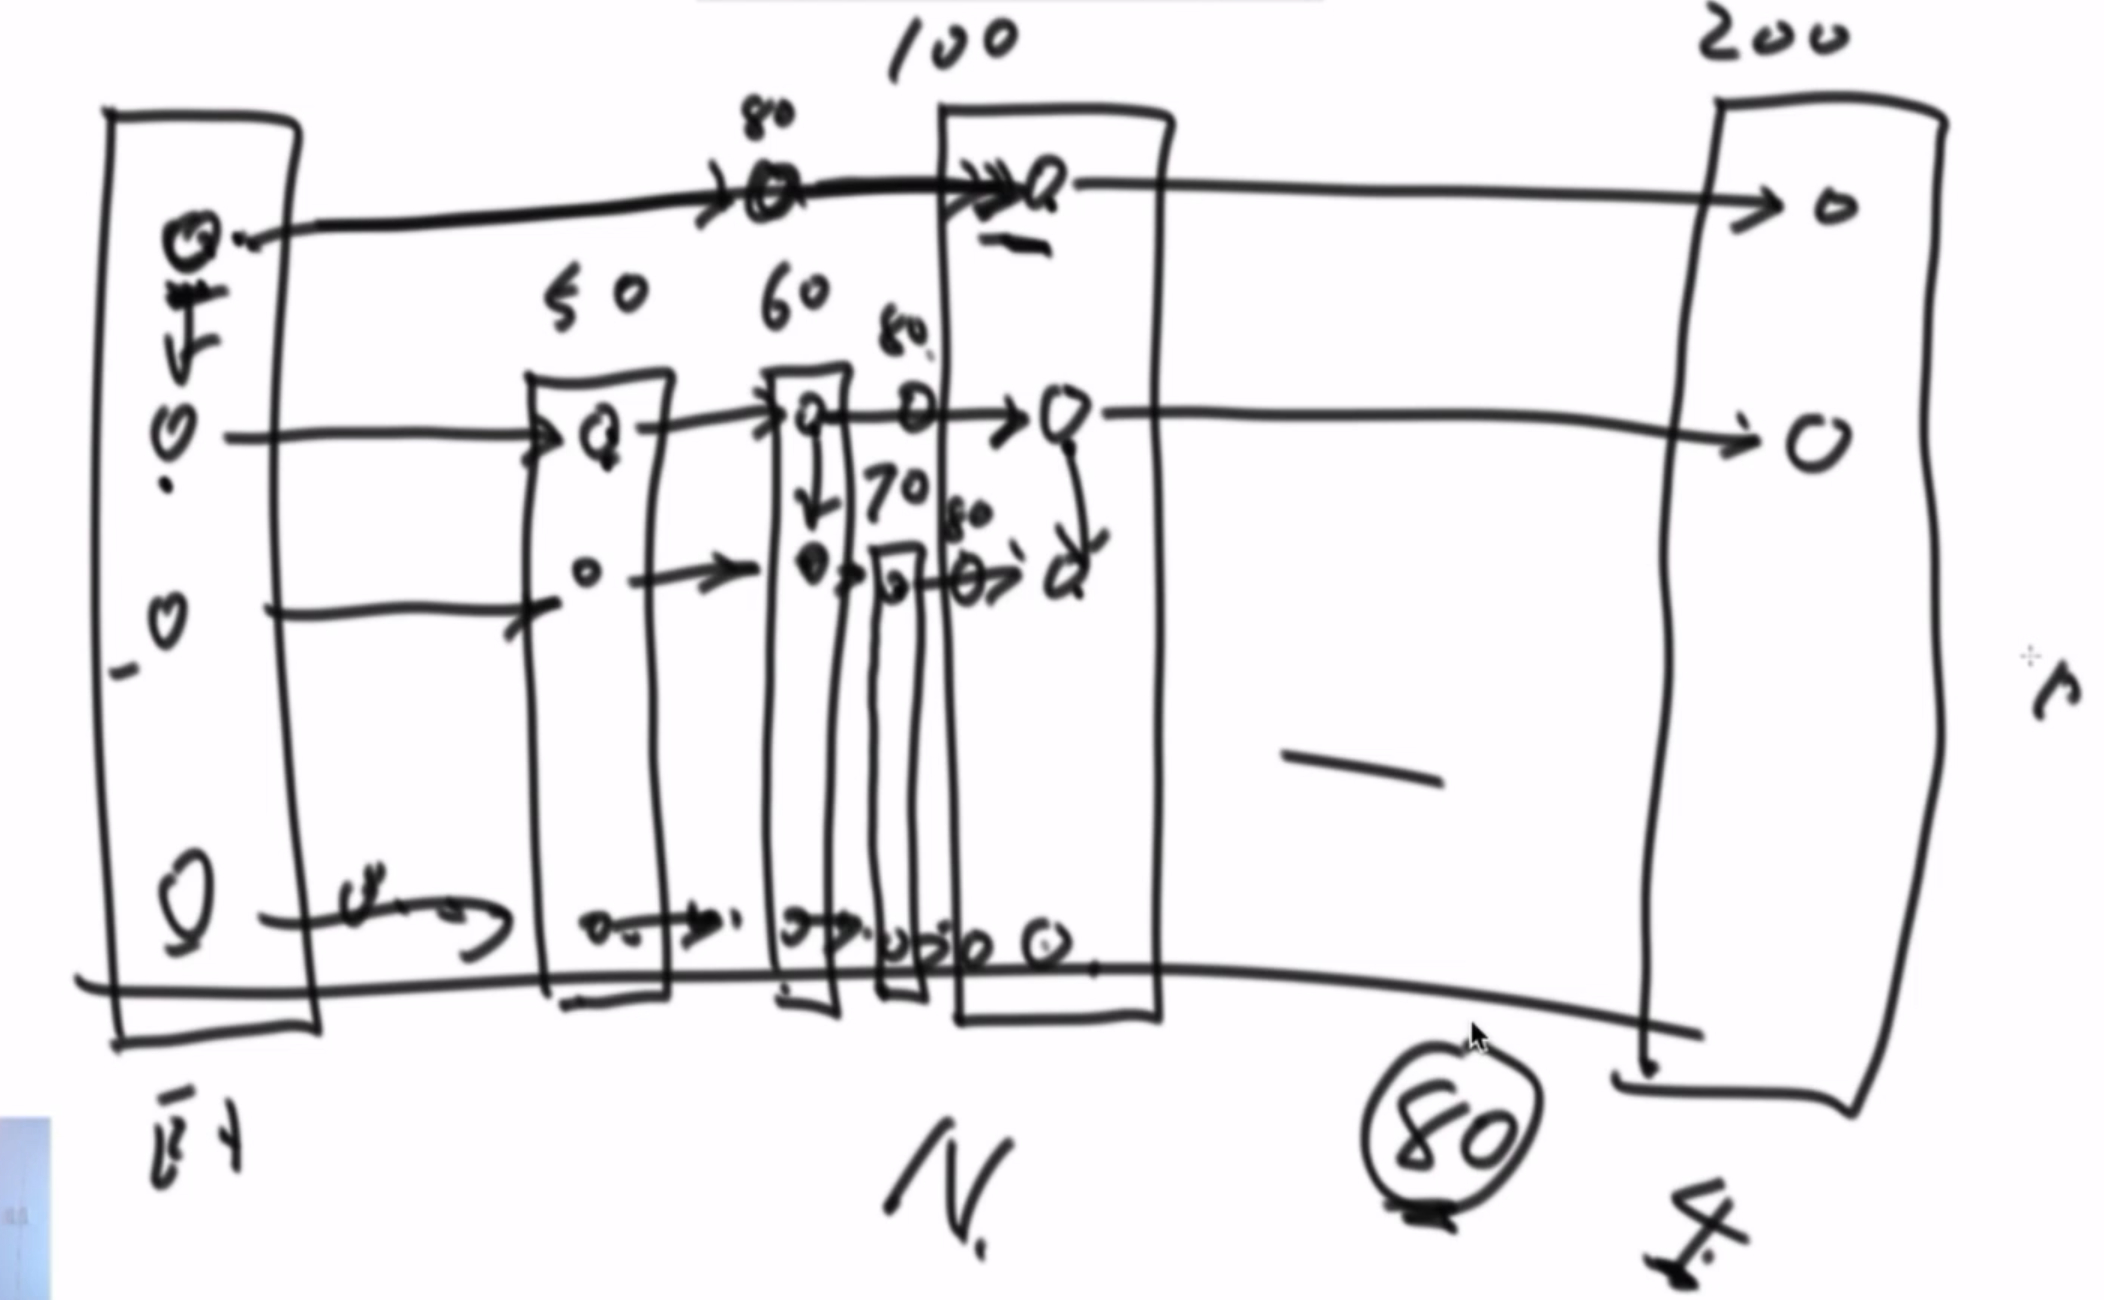 100
200
80
50
60
80
70
80
N.
80